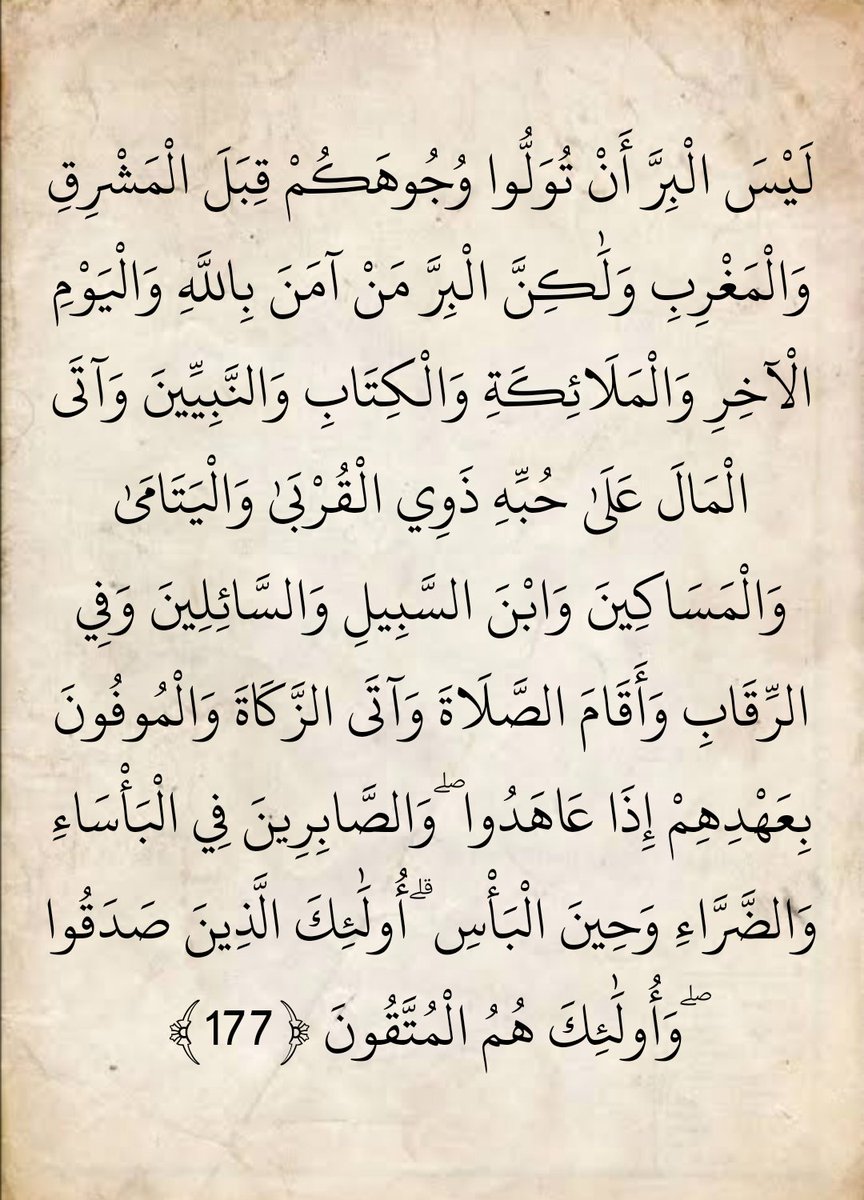 لَيْسَ الْبِرَّ أَنْ تُوَلُّوا وُجُوهَكُمْ قِبَلَ الْمَشْرِقِ
وَالْمَغْرِبِ وَلَٰكِنَّ الْبِرَّ مَنْ آمَنَ بِاللَّهِ وَالْيَوْمِ
الْآخِرِ وَالْمَلَائِكَةِ وَالْكِتَابِ وَالنَّبِيِّينَ وَآتَى
الْمَالَ عَلَىٰ حُبِّهِ ذَوِي الْقُرْبَىٰ وَالْيَتَامَىٰ
وَالْمَسَاكِينَ وَابْنَ السَّبِيلِ وَالسَّائِلِينَ وَفِي
الرِّقَابِ وَأَقَامَ الصَّلَاةَ وَآتَى الزَّكَاةَ وَالْمُوفُونَ
بِعَهْدِهِمْ إِذَا عَاهَدُوا ۖ وَالصَّابِرِينَ فِي الْبَأْسَاءِ
وَالضَّرَّاءِ وَحِينَ الْبَأْسِ ۗ أُولَٰئِكَ الَّذِينَ صَدَقُوا
ۖ وَأُولَٰئِكَ هُمُ الْمُتَّقُونَ ﴿177﴾